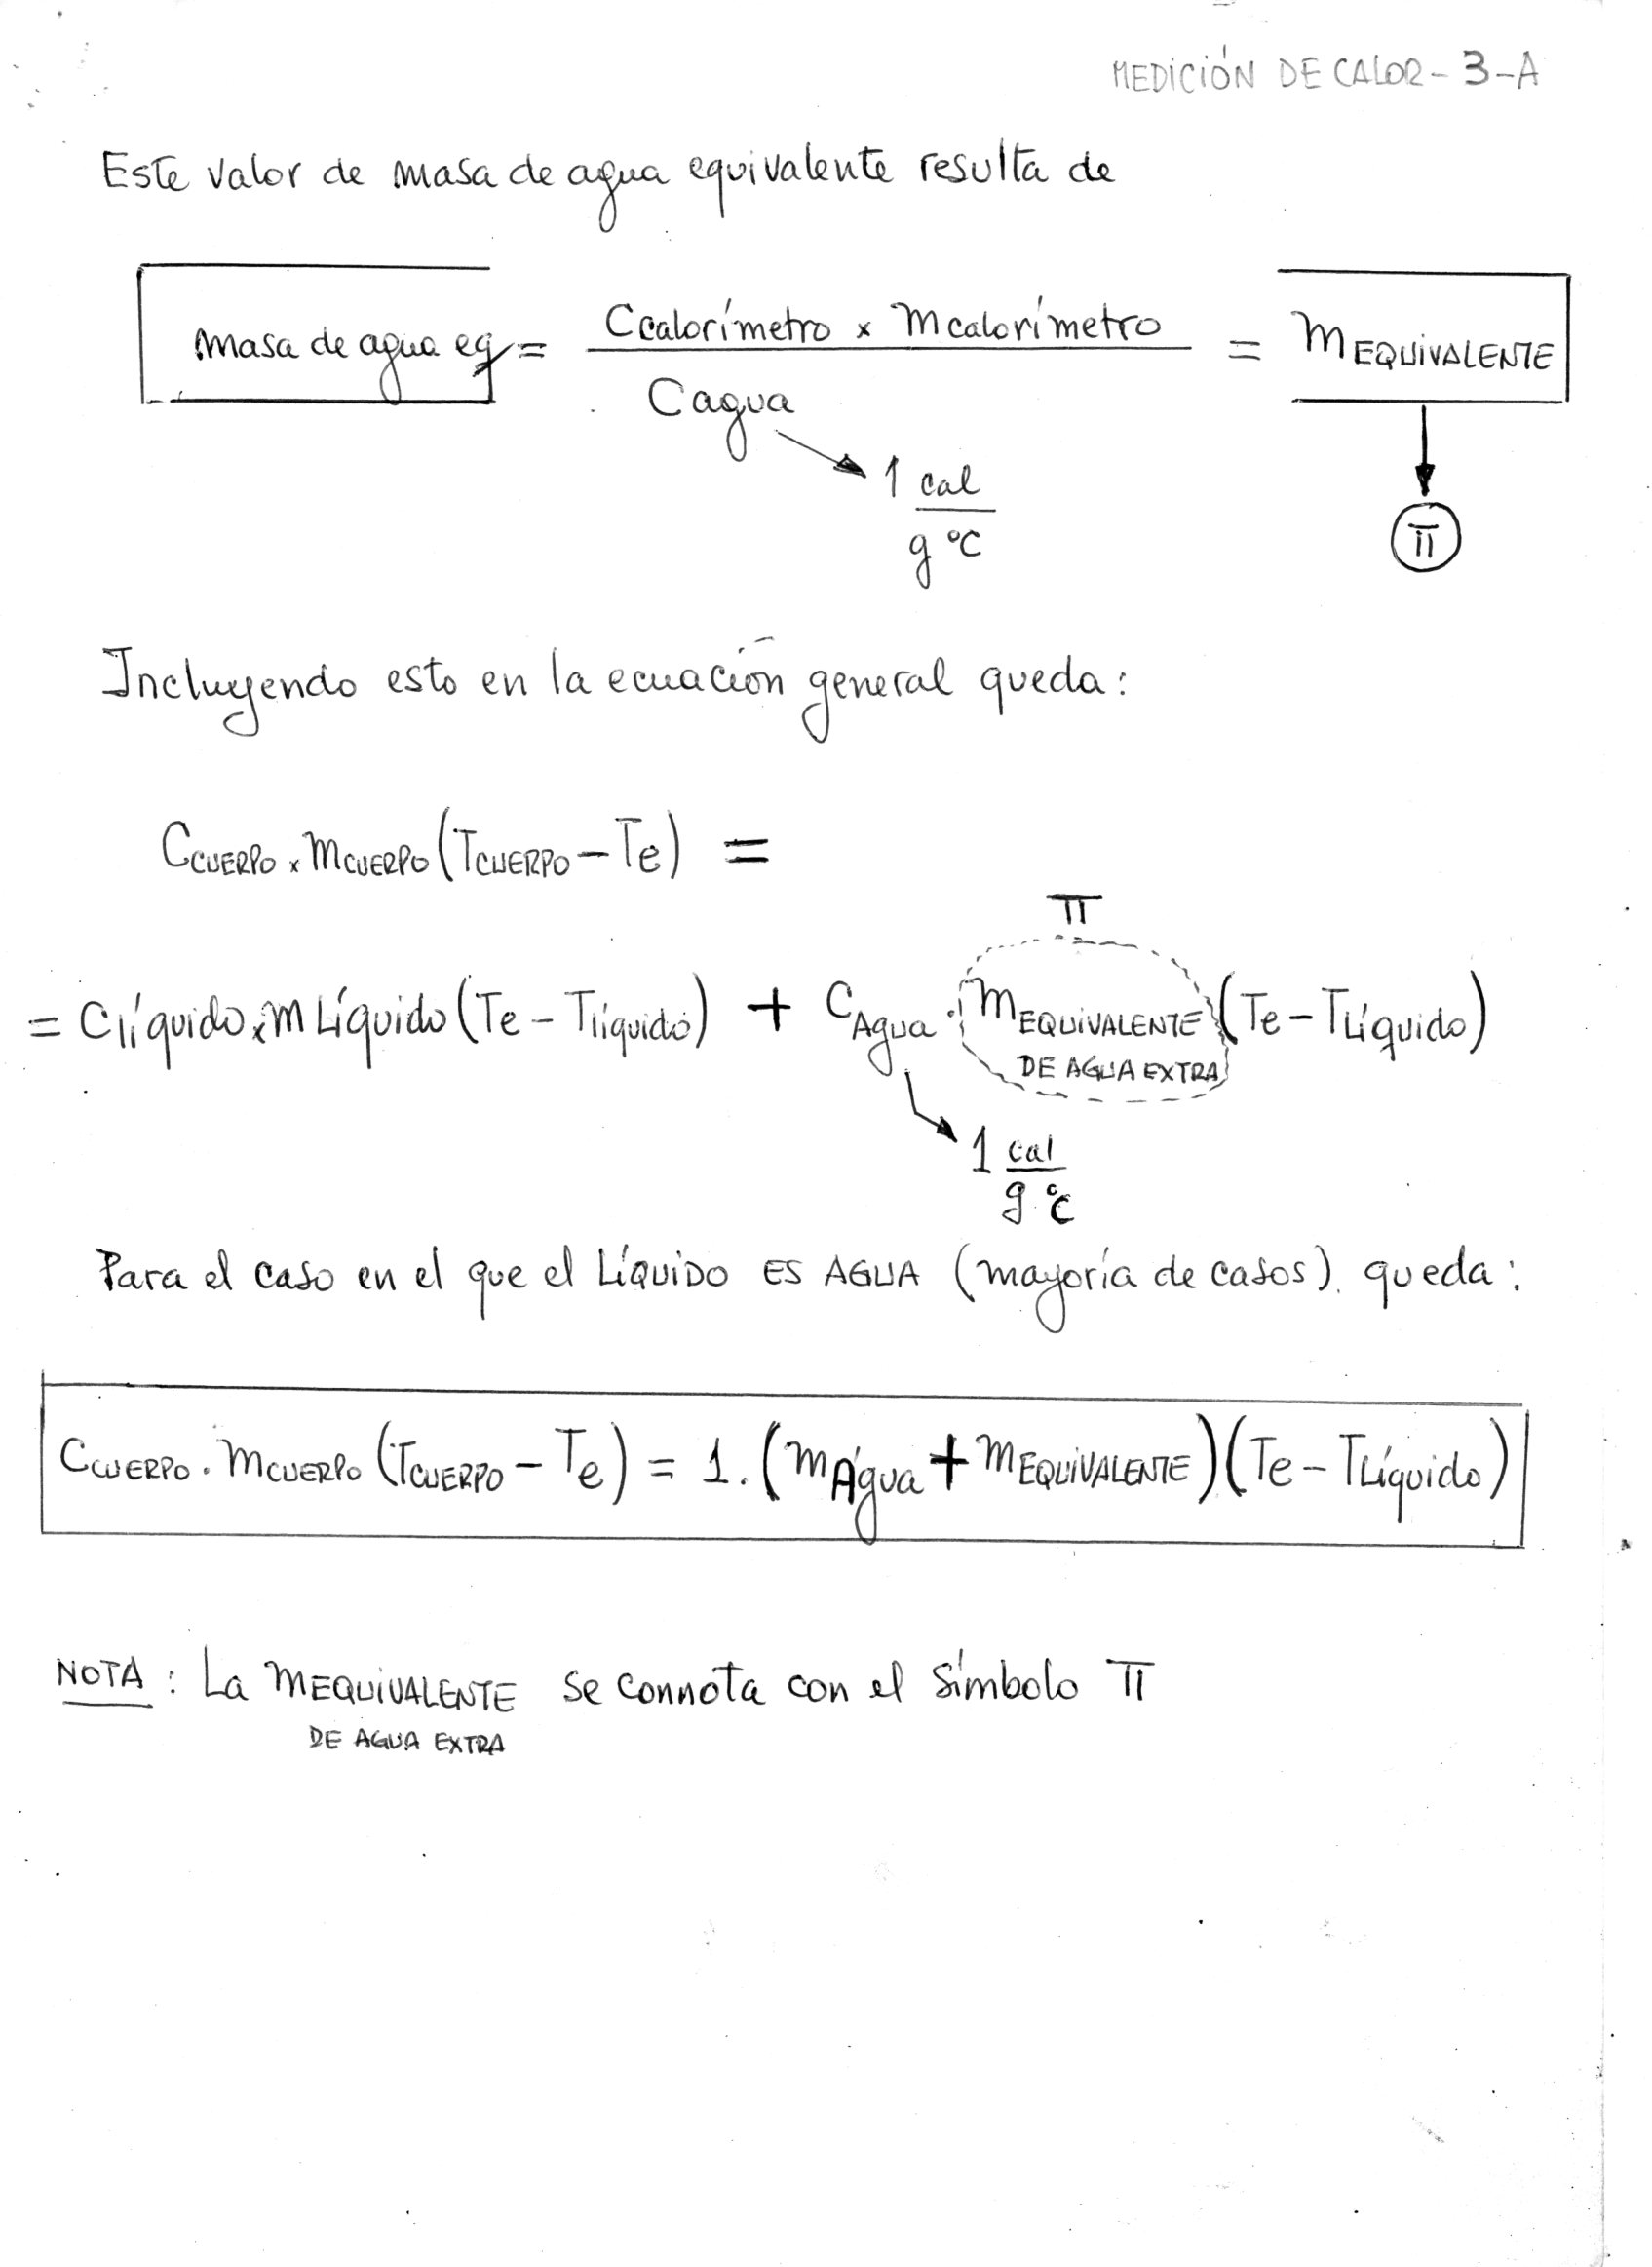 MEDICIÓN DE CALOR - 3 - A
Este valor de masa de agua equivalente resulta de
masa de agua eq = Ccalorímetro x mcalorímetro / Cagua = m EQUIVALENTE
1 cal / g °C
π
Incluyendo esto en la ecuación general queda:
CCUERPO x mCUERPO (TCUERPO - Te) =
π
= Clíquido x m Líquido (Te - Tlíquido) + CAgua . mEQUIVALENTE (Te - TLíquido)
DE AGUA EXTRA
1 cal / g °C
Para el caso en el que el LÍQUIDO ES AGUA (mayoría de casos). queda:
CCUERPO . mCUERPO (TCUERPO - Te) = 1. (mAgua + mEQUIVALENTE) (Te - TLíquido)
NOTA : La mEQUIVALENTE se connota con el símbolo π
DE AGUA EXTRA